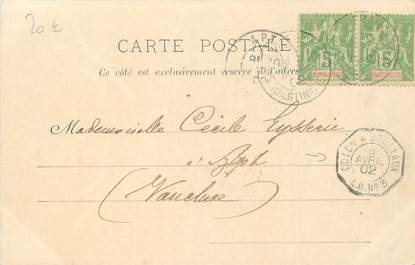 20 €
CARTE POSTALE
Ce côté est exclusivement réservé à l'adresse
MARTINIQUE
5 5
Mademoiselle Cécile Eysserie
à Apt
(Vaucluse)
COLON A BORDEAUX
5
AVRIL
02
L.D. Nº 3